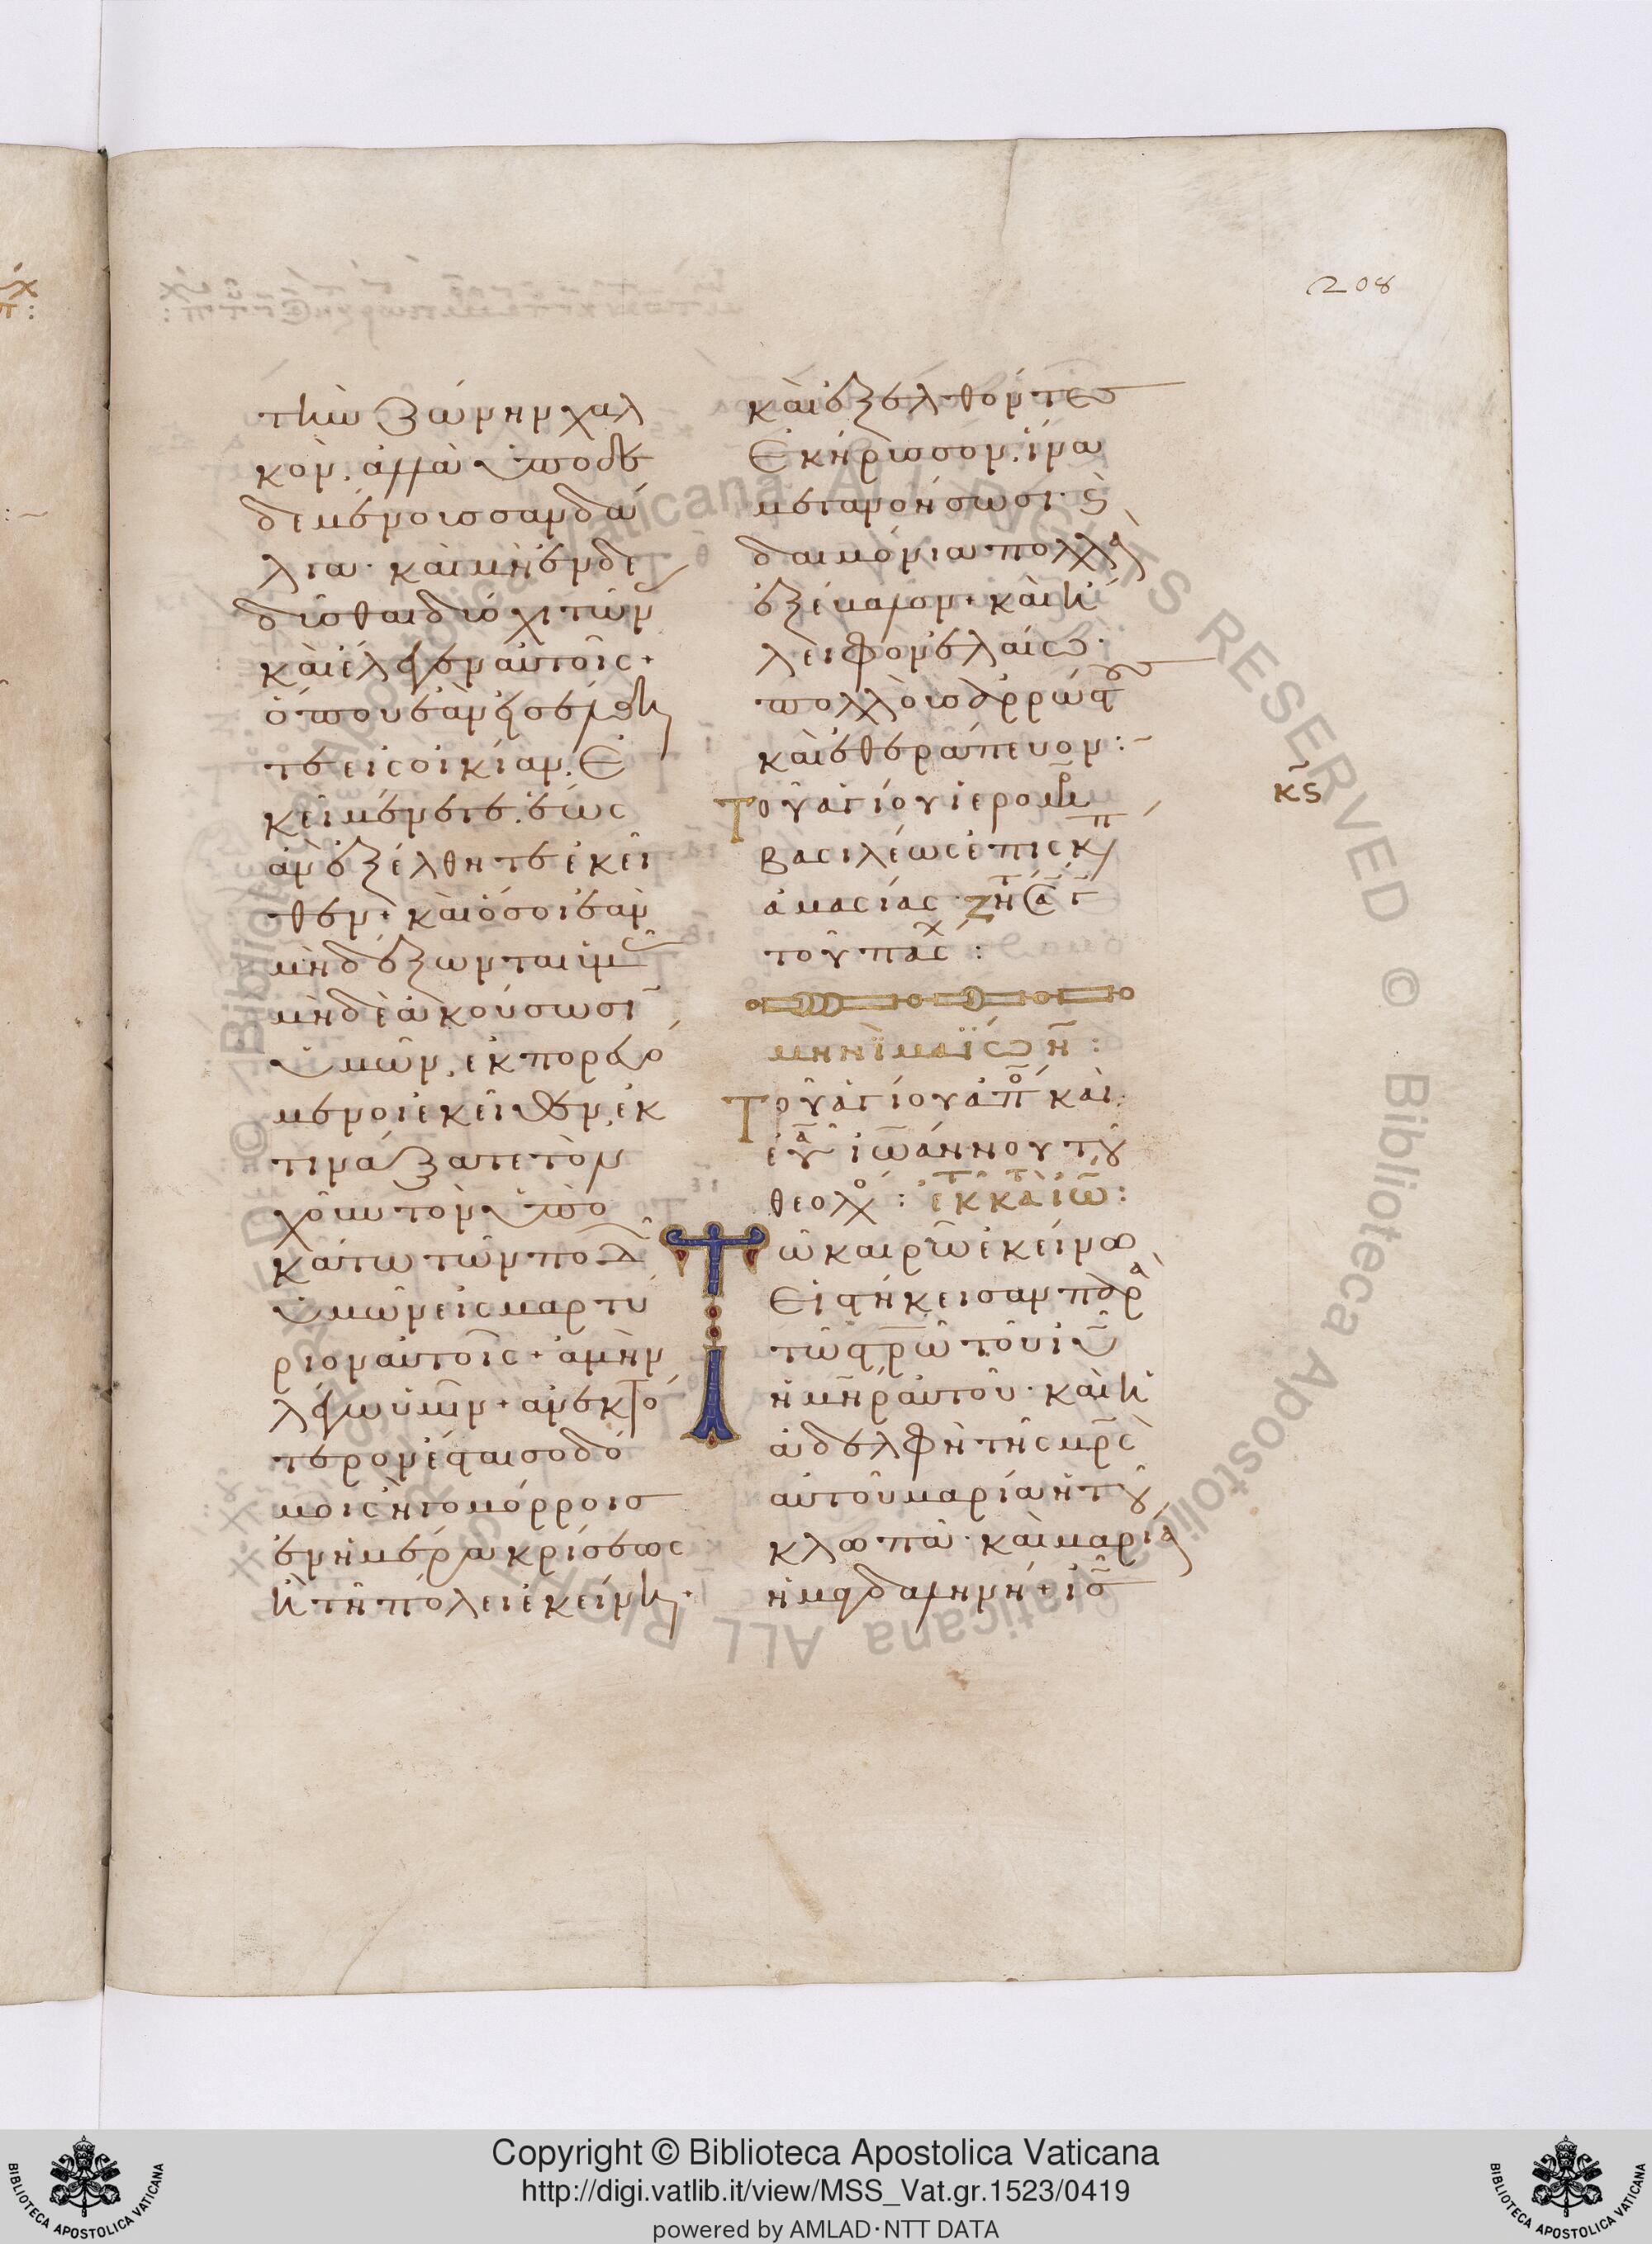 208
τὴν ζώνην χαλ
κόν. ἀλλὰ ὑποδε
δεμένοισ σανδά
λια· καὶ μὴ ἐνδε
δῦσθαι δύο χιτών
καὶ ἔλεγεν αὐτοῖς+
ὅπου ἐὰν εἰσέλθη
τε εἰς οἰκίαν. ἐ
κεῖ μένετε. ἕως
ἂν ἐξέλθητε ἐκεῖ
θεν+ καὶ ὅσοι ἐὰν
μὴ δέξωνται ὑμ
μηδὲ ἀκούσωσι
ὑμῶν, ἐκπορευό
μενοι ἐκεῖθεν, ἐκ
τινάξατε τὸν
χοῦν τὸν ὑπὸ
κάτω τῶν ποδ
ὑμῶν εἰς μαρτύ
ριον αὐτοῖς+ ἀμὴν
λέγω ὑμῖν+ ἀνεκτό
τερον ἔσται σοδό
μοις ἢ γομόρροισ
ἐν ἡμέρα κρίσεως
ἢ τῆ πόλει ἐκείνη+
καὶ ἐξελθόντεσ
ἐκήρυσσον. ἵνα
μετανοήσωσι· ϛ̀
δαιμόνια πολλὰ
ἐξέβαλλον+ καὶ ἤ
λειφον ἐλαίω·
πολλοὺσ ἀρρώστ
καὶ ἐθεράπευον:~
Τοῦ ἁγίου ἱερομ
βασιλέως ἐπισκ
ἀμασίας· ζη
τοῦ πασχ:
κϛ
μηνὶ μαΐω η̄:
Τοῦ ἁγίου ἀπο καὶ
εὐα ἰωάννου τοῦ
θεολο: ἐκ κατ ἰω:
Τῶ καιρῶ ἐκείνω
Εἱστήκεισαν παρὰ
τῶ στρω τοῦ ιυ
ἡ μηρ αὐτοῦ· καὶ ἡ
ἀδελφὴ τῆς μρς
αὐτοῦ μαρία ἡ τοῦ
κλωπᾶ· καὶ μαρία
ἡ μαγδαληνή+ ισ
Copyright © Biblioteca Apostolica Vaticana
http://digi.vatlib.it/view/MSS_Vat.gr.1523/0419
powered by AMLAD·NTT DATA